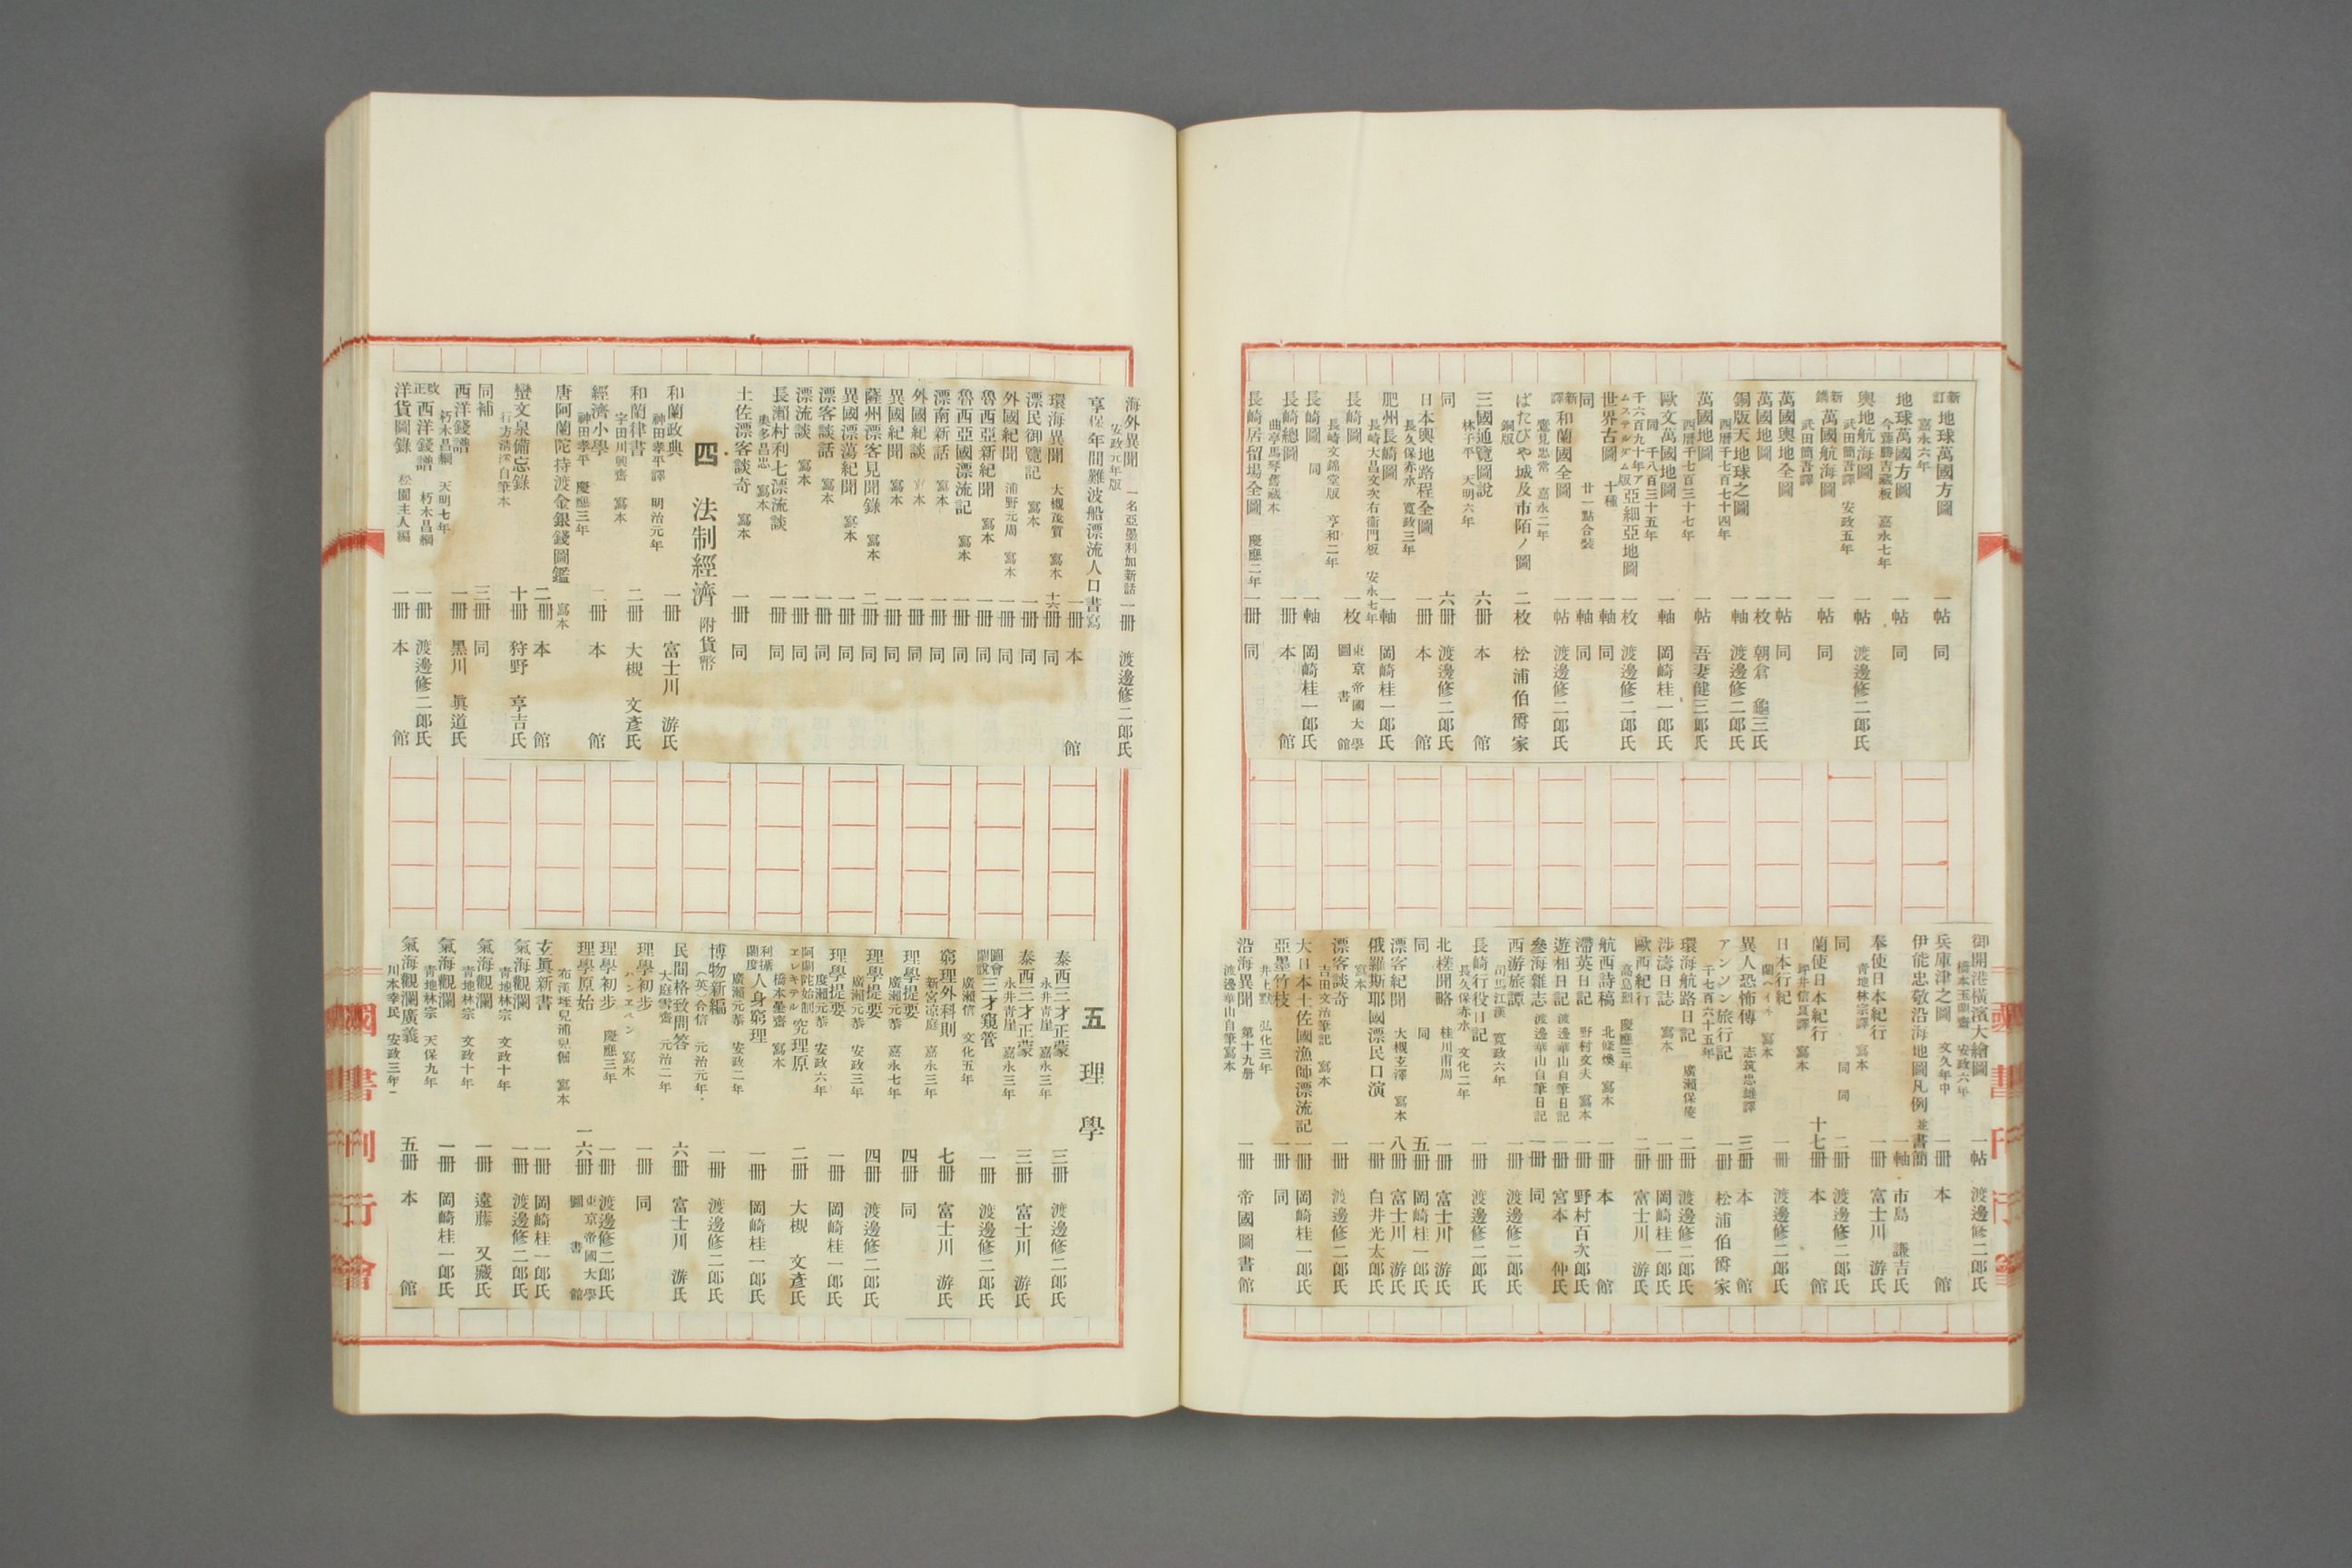 新訂 地球萬國方圖 嘉永六年 一帖 同
地球萬國方圖 今井勝吉藏板 嘉永七年 一帖 同
輿地航海圖 武田簡吾譯 安政五年 一帖 渡邊修二郎氏
新鐫 萬國航海圖 武田簡吾譯 一帖 同
萬國輿地全圖 一帖 同
萬國地圖 一枚 朝倉 龜三氏
銅版天地球之圖 西曆千七百七十四年 一軸 渡邊修二郎氏
萬國地圖 西曆千七百三十七年 一帖 吾妻健三郎氏
歐文萬國地圖 同 千八百三十五年 一軸 岡崎桂一郎氏
千六百九十年アムステルダム版 亞細亞地圖 一枚 渡邊修二郎氏
世界古圖 十種 一軸 同
同 廿一點合裝 一軸 同
新譯 和蘭國全圖 鷹見忠常 嘉永二年 一帖 渡邊修二郎氏
ばたびや城及市陌ノ圖 銅版 二枚 松浦伯爵家
三國通覽圖說 林子平 天明六年 六冊 本 館
同 六冊 渡邊修二郎氏
日本輿地路程全圖 長久保赤水 寬政三年 一冊 本 館
肥州長崎圖 長崎大昌文次右衞門板 安永七年 一軸 岡崎桂一郎氏
長崎圖 長崎文錦堂版 享和二年 一枚 東京帝國大學圖書館
長崎圖 同 一軸 岡崎桂一郎氏
長崎總圖 曲亭馬琴舊藏本 一冊 本 館
長崎居留場全圖 慶應二年 一冊 同
御開港橫濱大繪圖 橋本玉蘭齋 安政六年 一帖 渡邊修二郎氏
兵庫津之圖 文久年中 一冊 本 館
伊能忠敬沿海地圖凡例並書簡 一軸 市島 謙吉氏
奉使日本紀行 靑地林宗譯 寫本 一冊 富士川 游氏
同 同 同 二冊 渡邊修二郎氏
蘭使日本紀行 坪井信良譯 寫本 十七冊 本 館
日本行紀 蘭ヘイネ 寫本 一冊 渡邊修二郎氏
異人恐怖傳 志筑忠雄譯 三冊 本 館
アンソン旅行記 千七百六十五年 一冊 松浦伯爵家
環海航路日記 廣瀨保庵 二冊 渡邊修二郎氏
涉濤日誌 寫本 一冊 岡崎桂一郎氏
歐西紀行 高島烈 慶應三年 二冊 富士川 游氏
航西詩稿 北條煥 寫本 一冊 本 館
滯英日記 野村文夫 寫本 一冊 野村百次郎氏
遊相日記 渡邊華山自筆日記 一冊 宮本 仲氏
參海雜志 渡邊華山自筆日記 一冊 同
西游旅譚 司馬江漢 寬政六年 一冊 渡邊修二郎氏
長崎行役日記 長久保赤水 文化二年 一冊 渡邊修二郎氏
北槎聞略 桂川甫周 一冊 富士川 游氏
同 同 五冊 岡崎桂一郎氏
漂客紀聞 大槻玄澤 寫本 八冊 富士川 游氏
俄羅斯耶國漂民口演 寫本 一冊 白井光太郎氏
漂客談奇 吉田文治筆記 寫本 一冊 渡邊修二郎氏
大日本土佐國漁師漂流記 一冊 岡崎桂一郎氏
亞墨竹枝 井上默 弘化三年 一冊 同
沿海異聞 第十九册 渡邊華山自筆寫本 一冊 帝國圖書館
海外異聞 一名亞墨利加新話 安政元年版 一冊 渡邊修二郎氏
享保年間難波船漂流人口書寫 一冊 本 館
環海異聞 大槻茂質 寫本 十六冊 同
漂民御覽記 寫本 一冊 同
外國紀聞 浦野元周 寫本 一冊 同
魯西亞新紀聞 寫本 一冊 同
魯西亞國漂流記 寫本 一冊 同
漂南新話 寫本 一冊 同
外國紀談 寫本 一冊 同
異國紀聞 寫本 一冊 同
薩州漂客見聞錄 寫本 二冊 同
異國漂蕩紀聞 寫本 一冊 同
漂客談話 寫本 一冊 同
漂流談 寫本 一冊 同
長瀨村利七漂流談 奧多昌忠 寫本 一冊 同
土佐漂客談奇 寫本 一冊 同
四 法制經濟 附貨幣
和蘭政典 神田孝平譯 明治元年 一冊 富士川 游氏
和蘭律書 宇田川興齋 寫本 二冊 大槻 文彥氏
經濟小學 神田孝平 慶應三年 二冊 本 館
唐阿蘭陀持渡金銀錢圖鑑 寫本 二冊 本 館
蠻文泉備忘錄 十冊 狩野 亨吉氏
同補 三冊 同
西洋錢譜 朽木昌綱 天明七年 一冊 黑川 眞道氏
改正 西洋錢譜 朽木昌綱 一冊 渡邊修二郎氏
洋貨圖錄 松園主人編 一冊 本 館
五 理學
泰西三才正蒙 永井靑崖 嘉永三年 三冊 渡邊修二郎氏
泰西三才正蒙 永井靑崖 嘉永三年 三冊 富士川 游氏
圖會蘭說 三才窺管 廣瀨信 文化五年 一冊 渡邊修二郎氏
窮理外科則 新宮涼庭 嘉永三年 七冊 富士川 游氏
理學提要 廣瀨元恭 嘉永七年 四冊 同
理學提要 廣瀨元恭 安政三年 四冊 渡邊修二郎氏
理學提要 廣瀨元恭 安政六年 一冊 岡崎桂一郎氏
阿蘭陀始制エレキテル究理原 橋本曇齋 寫本 二冊 大槻 文彥氏
利攝蘭度 人身窮理 廣瀨元恭 安政二年 一冊 岡崎桂一郎氏
博物新編 （英）合信 元治元年 一冊 渡邊修二郎氏
民間格致問答 大庭雪齋 元治二年 六冊 富士川 游氏
理學初步 ハンヱベン 寫本 一冊 同
理學初步 慶應三年 一冊 渡邊修二郎氏
理學原始 布漢垤兒浦兒傴 寫本 一六冊 東京帝國大學圖書館
玄眞新書 一冊 岡崎桂一郎氏
氣海觀瀾 靑地林宗 文政十年 一冊 渡邊修二郎氏
氣海觀瀾 靑地林宗 文政十年 一冊 遠藤 又藏氏
氣海觀瀾 靑地林宗 天保九年 一冊 岡崎桂一郎氏
氣海觀瀾廣義 川本幸民 安政三年 五冊 本 館
國書刊行會